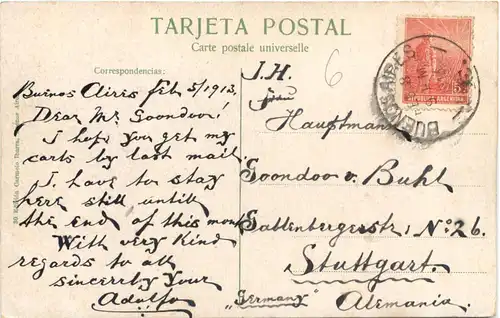 TARJETA POSTAL
Carte postale universelle
Correspondencias:
Buenos Aires Feb 5/1913,
Dear Mr. Soondoo!
I hope you get my
carts by last mail
I have to stay
here still untill
the end of this month
With very Kind
regards to all
sincerly Your
Adolfo
J. H.
Hauptmann
Soondoo v. Buhl
No: 26.
Stuttgart.
"Germany" Alemania.
REPUBLICA ARGENTINA
BUENOS AIRES
6